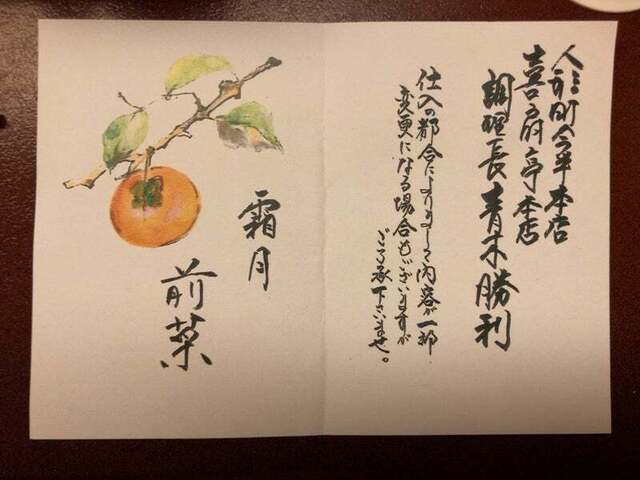 人形町今半本店
喜扇亭本店
調理長青木勝利
仕入の都合によりまして内容が一部
変更になる場合もございますが
ご了承下さいませ。
霜月
前菜